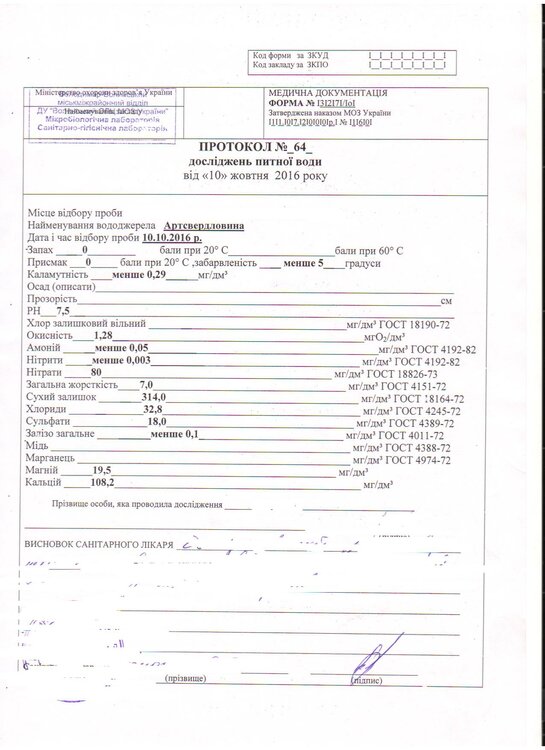 Код форми за ЗКУД |_|_|_|_|_|_|_|
Код закладу за ЗКПО |_|_|_|_|_|_|_|
Міністерство охорони здоров'я України
міськміжрайонний відділ
Мікробіологічна лабораторія
Санітарно-гігієнічна лабораторія
МЕДИЧНА ДОКУМЕНТАЦІЯ
ФОРМА № І3І2І7І/ІоІ
Затверджена наказом МОЗ України
І1І1.І0І7.І2І0І0І0Ір.І № І1І6І0І
ПРОТОКОЛ №_64_
досліджень питної води
від «10» жовтня 2016 року
Місце відбору проби
Найменування вододжерела Артсвердловина
Дата і час відбору проби 10.10.2016 р.
Запах 0 бали при 20° С бали при 60° С
Присмак 0 бали при 20° С ,забарвленість менше 5 градуси
Каламутність менше 0,29 мг/дм³
Осад (описати)
Прозорість см
РН 7,5
Хлор залишковий вільний мг/дм³ ГОСТ 18190-72
Окисність 1,28 мгО₂/дм³
Амоній менше 0,05 мг/дм³ ГОСТ 4192-82
Нітрити менше 0,003 мг/дм³ ГОСТ 4192-82
Нітрати 80 мг/дм³ ГОСТ 18826-73
Загальна жорсткість 7,0 мг/дм³ ГОСТ 4151-72
Сухий залишок 314,0 мг/дм³ ГОСТ 18164-72
Хлориди 32,8 мг/дм³ ГОСТ 4245-72
Сульфати 18,0 мг/дм³ ГОСТ 4389-72
Залізо загальне менше 0,1 мг/дм³ ГОСТ 4011-72
Мідь мг/дм³ ГОСТ 4388-72
Марганець мг/дм³ ГОСТ 4974-72
Магній 19,5 мг/дм³
Кальцій 108,2 мг/дм³
Прізвище особи, яка проводила дослідження
ВИСНОВОК САНІТАРНОГО ЛІКАРЯ
(прізвище) (підпис)